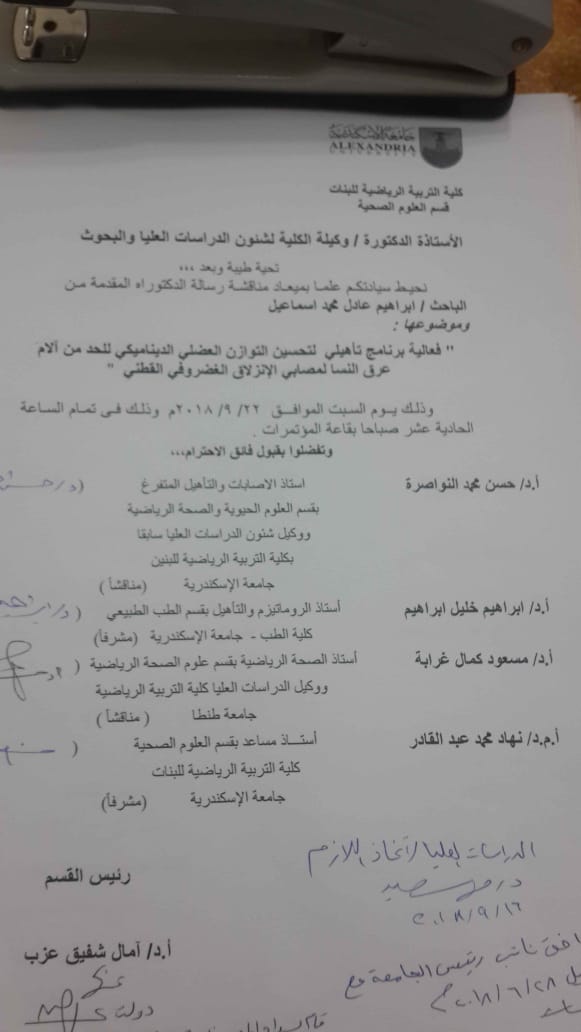 جامعة الإسكندرية
ALEXANDRIA
UNIVERSITY
كلية التربية الرياضية للبنات
قسم العلوم الصحية
الأستاذة الدكتورة / وكيلة الكلية لشئون الدراسات العليا والبحوث
تحية طيبة وبعد ،،،
نحيط سيادتكم علما بميعاد مناقشة رسالة الدكتوراه المقدمة من
الباحث / ابراهيم عادل محمد اسماعيل
وموضوعها :
" فعالية برنامج تأهيلي لتحسين التوازن العضلي الديناميكي للحد من آلام
عرق النسا لمصابي الإنزلاق الغضروفي القطني "
وذلك يوم السبت الموافق ٢٢/ ٩/ ٢٠١٨م وذلك فى تمام الساعة
الحادية عشر صباحا بقاعة المؤتمرات .
وتفضلوا بقبول فائق الاحترام،،،
أ.د/ حسن محمد النواصرة استاذ الاصابات والتأهيل المتفرغ (
بقسم العلوم الحيوية والصحة الرياضية
ووكيل شئون الدراسات العليا سابقا
بكلية التربية الرياضية للبنين
جامعة الإسكندرية (مناقشاً )
أ.د/ ابراهيم خليل ابراهيم أستاذ الروماتيزم والتأهيل بقسم الطب الطبيعي (
كلية الطب - جامعة الإسكندرية (مشرفاً)
أ.د/ مسعود كمال غرابة أستاذ الصحة الرياضية بقسم علوم الصحة الرياضية (
ووكيل الدراسات العليا كلية التربية الرياضية
جامعة طنطا ( مناقشاً )
أ.م.د/ نهاد محمد عبد القادر أستـــاذ مساعد بقسم العلوم الصحية (
كلية التربية الرياضية للبنات
جامعة الإسكندرية (مشرفاً)
الدراسات العليا لاتخاذ اللازم
٢٠١٨/٩/١٦
رئيس القسم
أ.د/ آمال شفيق عزب
نائب رئيس الجامعة
٢٠١٨/٦/٢٨